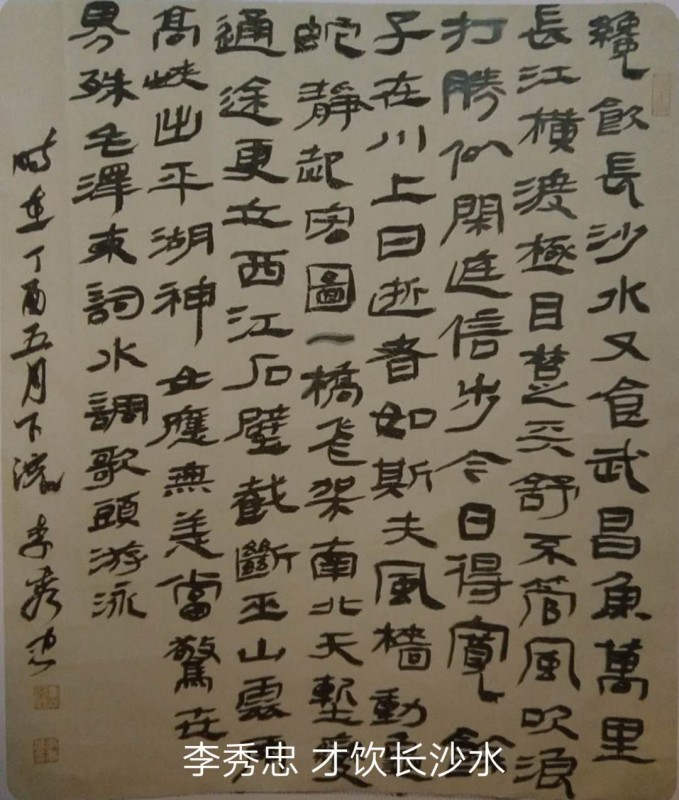 纔飲長沙水又食武昌魚萬里
長江橫渡極目楚天舒不管風吹浪
打勝似閑庭信步今日得寬餘
子在川上曰逝者如斯夫風檣動龜
蛇靜起宏圖一橋飛架南北天塹變
通途更立西江石壁截斷巫山雲雨
高峽出平湖神女應無恙當驚世
界殊毛澤東詞水調歌頭游泳
時在丁酉五月下浣李秀忠
李秀忠 才饮长沙水